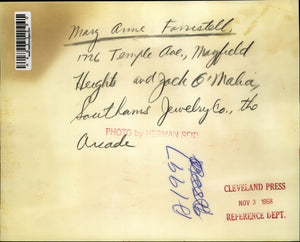 Mary Anne Forristell
1726 Temple Ave., Mayfield
Heights and Jack O'Malia,
Southams Jewelry Co., the
Arcade
PHOTO by HERMAN SEID
A1997
CLEVELAND PRESS
NOV 3 1958
REFERENCE DEPT.